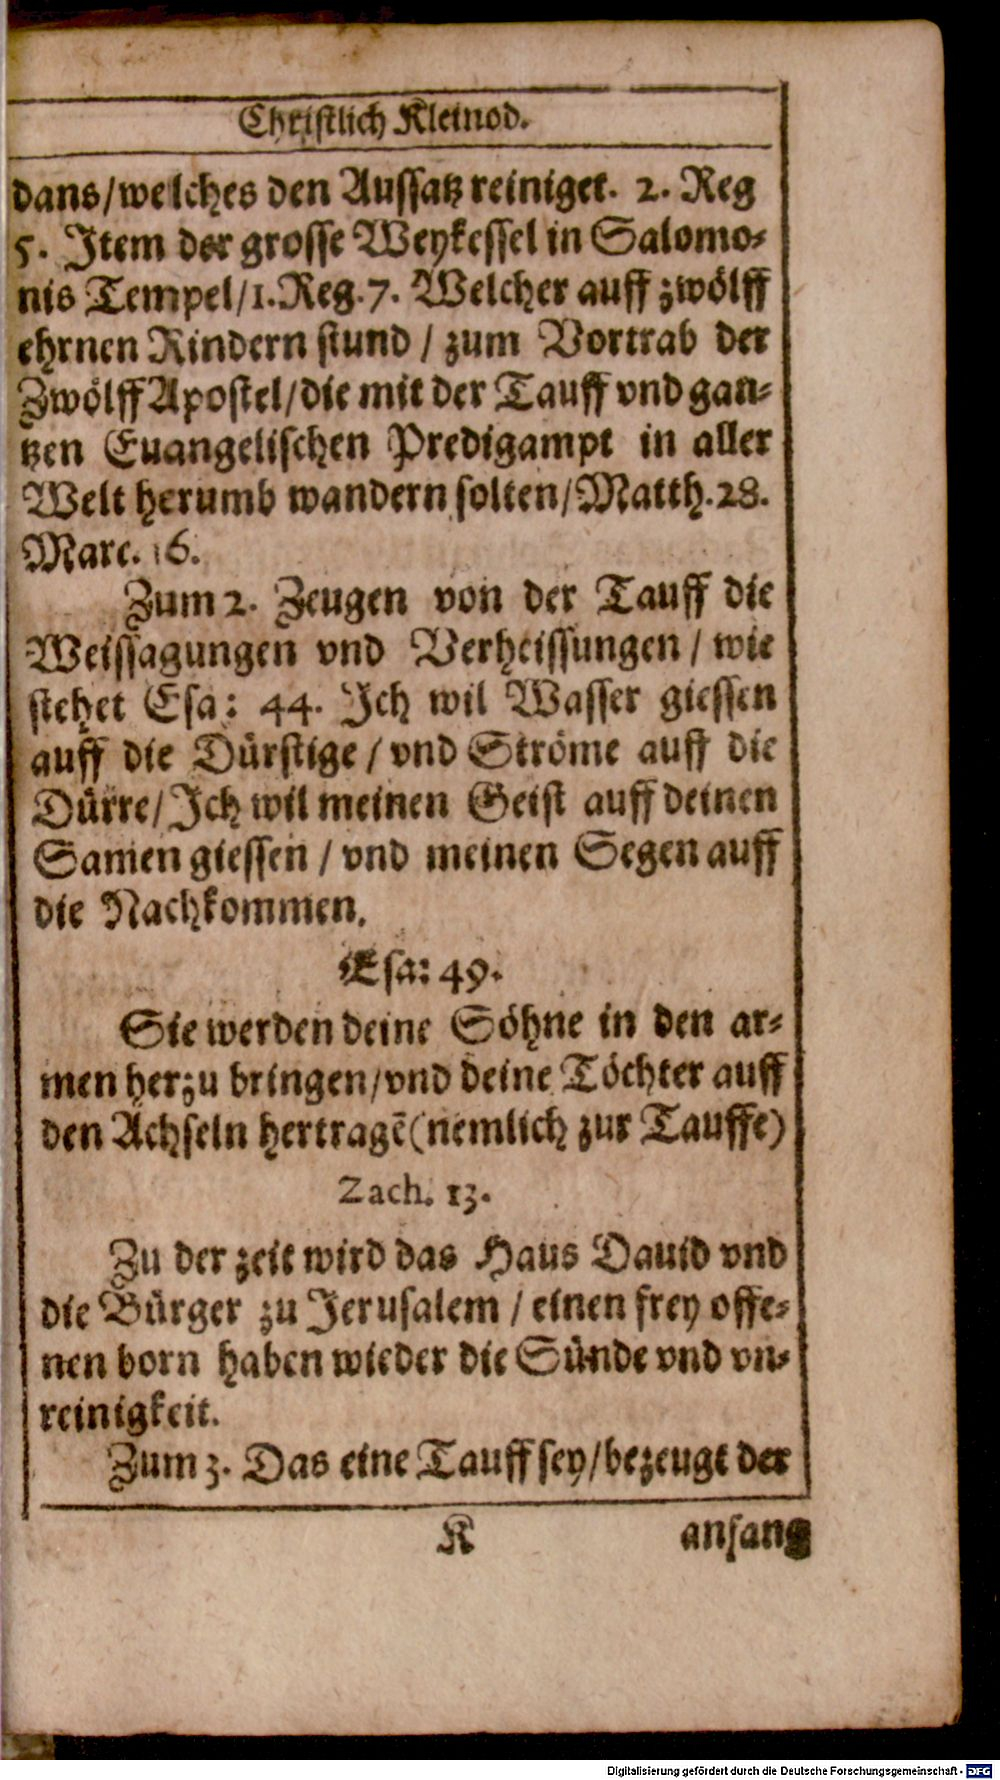 Christlich Kleinod.
dans/welches den Aussatz reiniget. 2. Reg
5. Item der grosse Weykessel in Salomo-
nis Tempel/1.Reg.7. Welcher auff zwölff
ehrnen Rindern stund / zum Vortrab der
Zwölff Apostel/die mit der Tauff vnd gan-
tzen Euangelischen Predigampt in aller
Welt herumb wandern solten/Matth.28.
Marc. 16.
Zum 2. Zeugen von der Tauff die
Weissagungen vnd Verheissungen / wie
stehet Esa: 44. Ich wil Wasser giessen
auff die Dürstige / vnd Ströme auff die
Dürre/Ich wil meinen Geist auff deinen
Samen giessen / vnd meinen Segen auff
die Nachkommen.
Esa: 49.
Sie werden deine Söhne in den ar-
men herzu bringen/vnd deine Töchter auff
den Achseln hertragē(nemlich zur Tauffe)
Zach. 13.
Zu der zeit wird das Haus Dauid vnd
die Bürger zu Jerusalem / einen frey offe-
nen born haben wieder die Sünde vnd vn-
reinigkeit.
Zum 3. Das eine Tauff sey/bezeugt der
K anfang
Digitalisierung gefördert durch die Deutsche Forschungsgemeinschaft - DFG